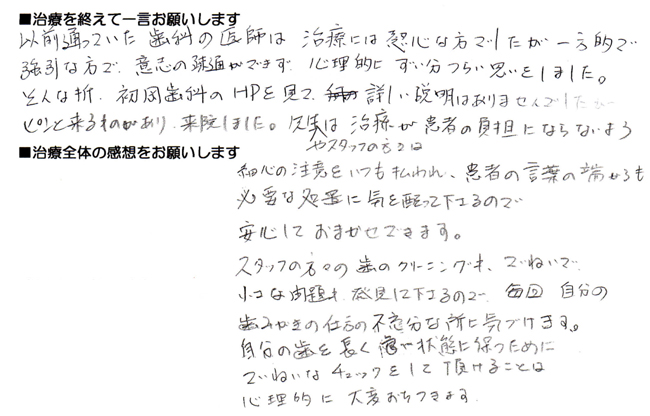 ■治療を終えて一言お願いします
以前通っていた歯科の医師は 治療には熱心な方でしたが一方的で
強引な方で、意志の疎通ができず、心理的にずい分つらい思いをしました。
そんな折、初岡歯科のHPを見て、詳しい説明はありませんでしたが
ピンと来るものがあり、来院しました。先生は 治療が患者の負担にならないよう
やスタッフの方々は
■治療全体の感想をお願いします
細心の注意をいつも払われ、患者の言葉の端からも
必要な処置に気を配って下さるので
安心しておまかせできます。
スタッフの方々の歯のクリーニングも、ていねいで
小さな問題も発見して下さるので、毎回 自分の
歯みがきの仕方の不充分な所に気づけます。
自分の歯を長く良い状態に保つために
ていねいなチェックをして頂けることは
心理的に大変おちつきます。